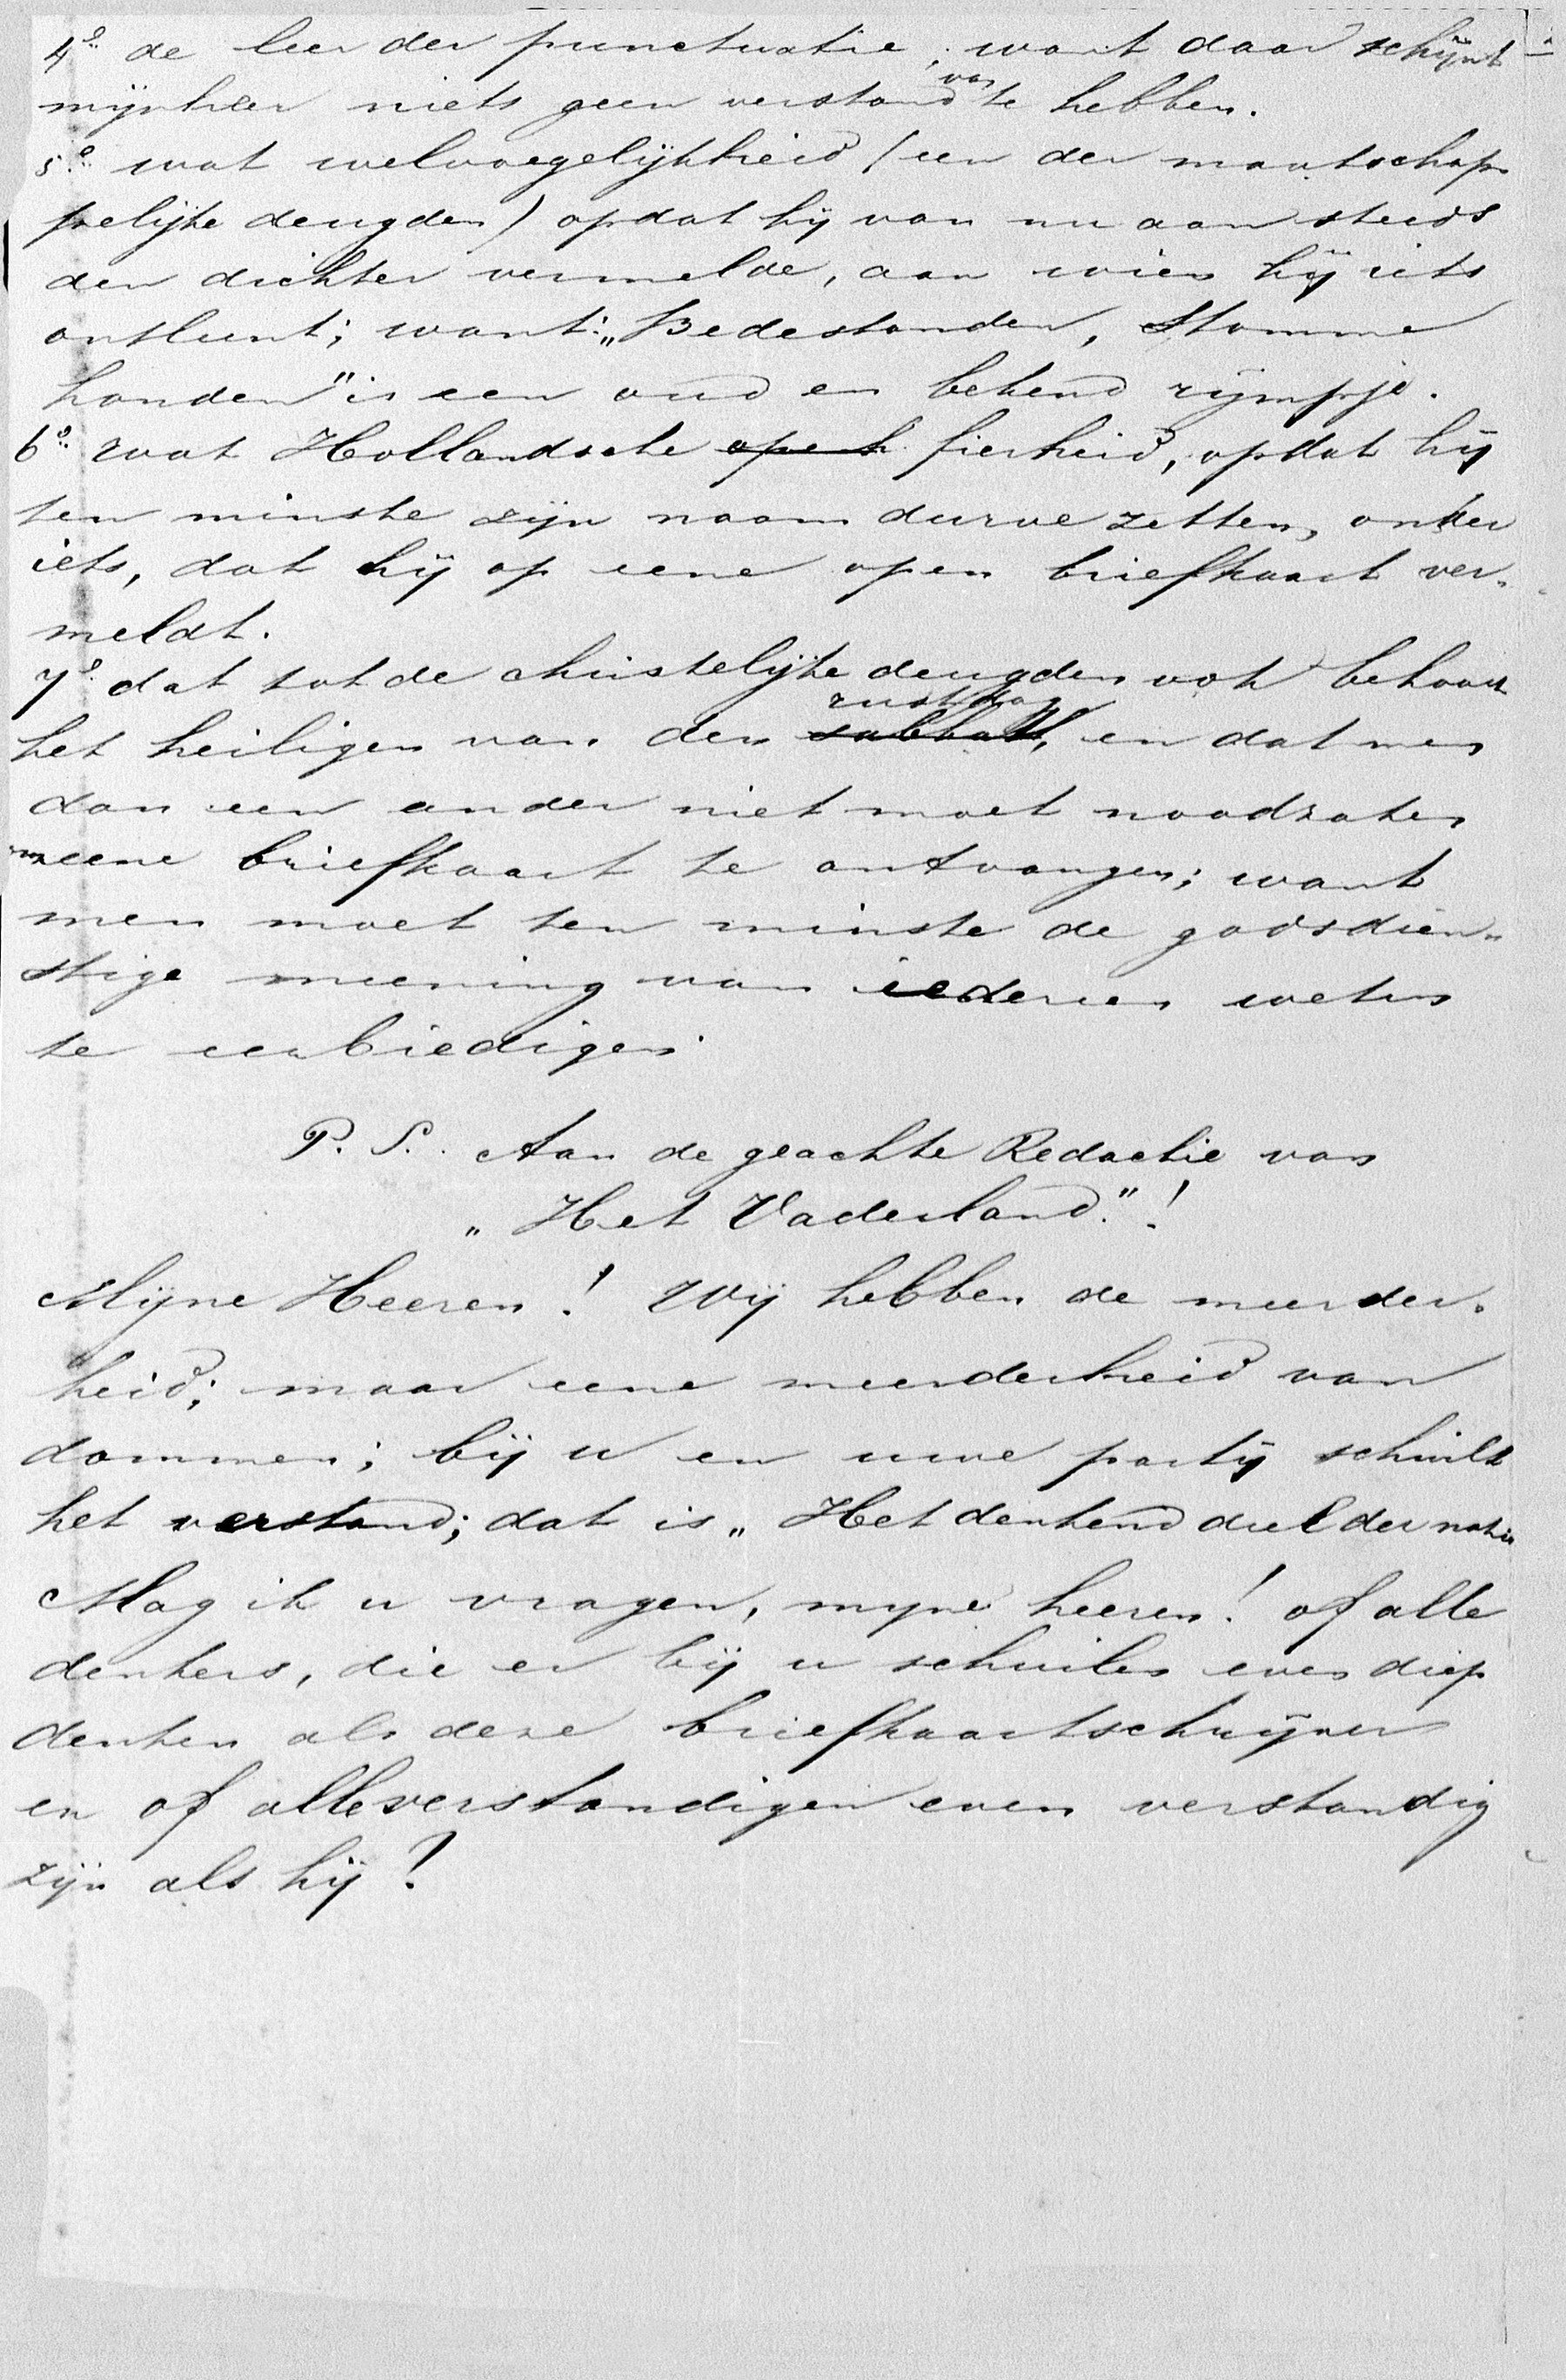 4º de leer der punctuatie, want daar schijnt
mijnheer niets geen verstand van te hebben.
5º wat welvoegelijkheid (een der maatschap-
pelijke deugden) opdat hij van nu aan steeds
den dichter vermelde, aan wien hij iets
ontleent; want: „Bedestonden, Stomme
honden" is een oud en bekend rijmpje.
6º wat Hollandsche fierheid, opdat hij
ten minste zijn naam durve zetten, onder
iets, dat hij op eene open briefkaart ver-
meldt.
7º dat tot de christelijke deugden ook behoort
het heiligen van den sabbath, rustdag en dat men
dan een ander niet moet noodzaken
om eene briefkaart te ontvangen; want
men moet ten minste de godsdien-
stige meening van iedereen weten
te eerbiedigen.
P. S. Aan de geachte Redactie van
„Het Vaderland."!
Mijne Heeren! Wij hebben de meerder-
heid; maar eene meerderheid van
dommen; bij u en uwe partij schuilt
het verstand; dat is „Het denkend deel der natie
Mag ik u vragen, myne heeren! of alle
denkers, die er bij u schuilen even diep
denken als deze briefkaartschrijver
en of alle verstandigen even verstandig
zijn als hij?